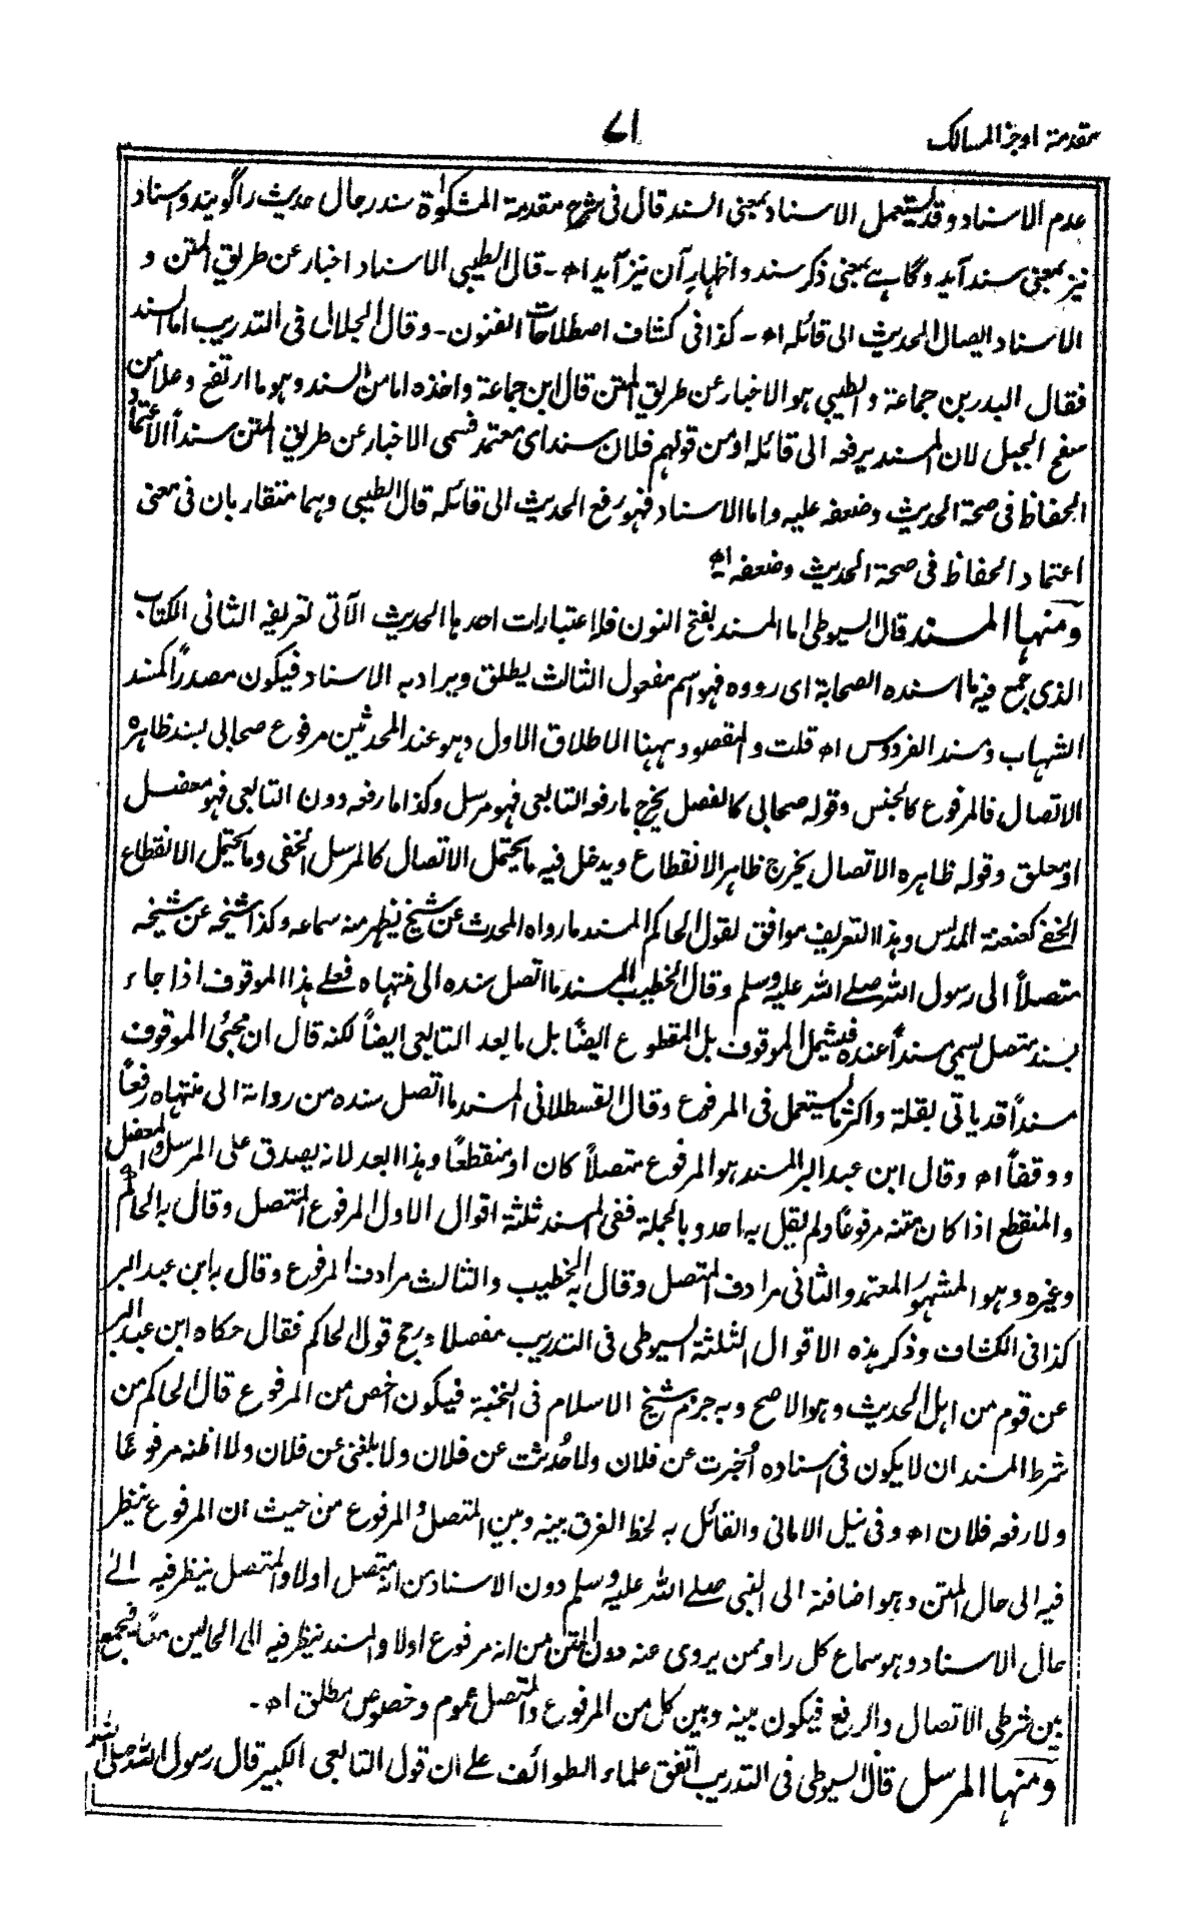 مقدمة اوجز المسالك
۷۱
عدم الاسناد وقد يستعمل الاسناد بمعنى السند قال فى شرح مقدمة المشكوٰة سند رجال حديث را گويند واسناد
نيز بمعنى سند آيد وگاہے بمعنى ذكر سند واظهار آن نيز آيد اه - قال الطيبى الاسناد اخبار عن طريق المتن و
الاسناد ايصال الحديث الى قائله اه - كذا فى كشاف اصطلاحات الفنون - وقال الجلال فى التدريب اما السند
فقال البدر بن جماعة والطيبى هو الاخبار عن طريق المتن قال ابن جماعة واخذه اما من السند وهو ما ارتفع وعلا من
سفح الجبل لان المسند يرفعه الى قائله او من قولهم فلان سند اى معتمد فسمى الاخبار عن طريق المتن سنداً لاعتماد
الحفاظ فى صحة الحديث وضعفه عليه واما الاسناد فهو رفع الحديث الى قائله قال الطيبى وهما متقاربان فى معنى
اعتماد الحفاظ فى صحة الحديث وضعفه اه
ومنها المسند قال السيوطى اما المسند بفتح النون فله اعتبارات احدها الحديث الآتى تعريفه الثانى الكتاب
الذى جمع فيه ما اسنده الصحابة اى رووه فهو اسم مفعول الثالث يطلق ويراد به الاسناد فيكون مصدراً كمسند
الشهاب ومسند الفردوس اه قلت والمقصود ههنا الاطلاق الاول وهو عند المحدثين مرفوع صحابى بسند ظاهره
الاتصال فالمرفوع كالجنس وقوله صحابى كالفصل يخرج ما رفعه التابعى فهو مرسل وكذا ما رفعه دون التابعى فهو معضل
او معلق وقوله ظاهره الاتصال يخرج ظاهر الانقطاع ويدخل فيه ما يحتمل الاتصال كالمرسل الخفى وما يحتمل الانقطاع
الخفے كعنعنة المدلس وهذا التعريف موافق لقول الحاكم المسند ما رواه المحدث عن شيخ يظهر منه سماعه وكذا شيخه عن شيخه
متصلاً الى رسول الله صلے الله عليه وسلم وقال الخطيب المسند ما اتصل سنده الى منتهاه فعلے هذا الموقوف اذا جاء
بسند متصل يسمى مسنداً عنده فيشمل الموقوف بل المقطوع ايضاً بل ما بعد التابعى ايضاً لكنه قال ان مجئ الموقوف
مسنداً قد ياتى بقلة واكثر ما يستعمل فى المرفوع وقال القسطلانى المسند ما اتصل سنده من رواته الى منتهاه رفعاً
ووقفاً اه وقال ابن عبد البر المسند هو المرفوع متصلاً كان او منقطعاً وهذا ابعد لانه يصدق على المرسل والمعضل
والمنقطع اذا كان متنه مرفوعاً ولم يقل به احد وبالجملة ففى المسند ثلثة اقوال الاول المرفوع المتصل وقال به الحاكم
وغيره وهو المشهور المعتمد والثانى مرادف المتصل وقال به الخطيب والثالث مرادف المرفوع وقال به ابن عبد البر
كذا فى الكشاف وذكر هذه الاقوال الثلثة السيوطى فى التدريب مفصلا ورجح قول الحاكم فقال حكاه ابن عبد البر
عن قوم من اهل الحديث وهو الاصح وبه جزم شيخ الاسلام فى النخبة فيكون اخص من المرفوع قال الحاكم من
شرط المسند ان لا يكون فى اسناده اُخبرت عن فلان ولا حُدثت عن فلان ولا بلغنى عن فلان ولا اظنه مرفوعًا
ولا رفعه فلان اه وفى نيل الامانى والقائل به لحظ الفرق بينه وبين المتصل والمرفوع من حيث ان المرفوع ينظر
فيه الى حال المتن وهو اضافته الى النبى صلے الله عليه وسلم دون الاسناد من انه متصل اولا والمتصل ينظر فيه الے
حال الاسناد وهو سماع كل راو ممن يروى عنه دون المتن من انه مرفوع اولا والمسند ينظر فيه الى الحالين معًا فيجمع
بين شرطى الاتصال والرفع فيكون بينه وبين كل من المرفوع والمتصل عموم وخصوص مطلق اه -
ومنها المرسل قال السيوطى فى التدريب اتفق علماء الطوائف علے ان قول التابعى الكبير قال رسول الله صلى الله